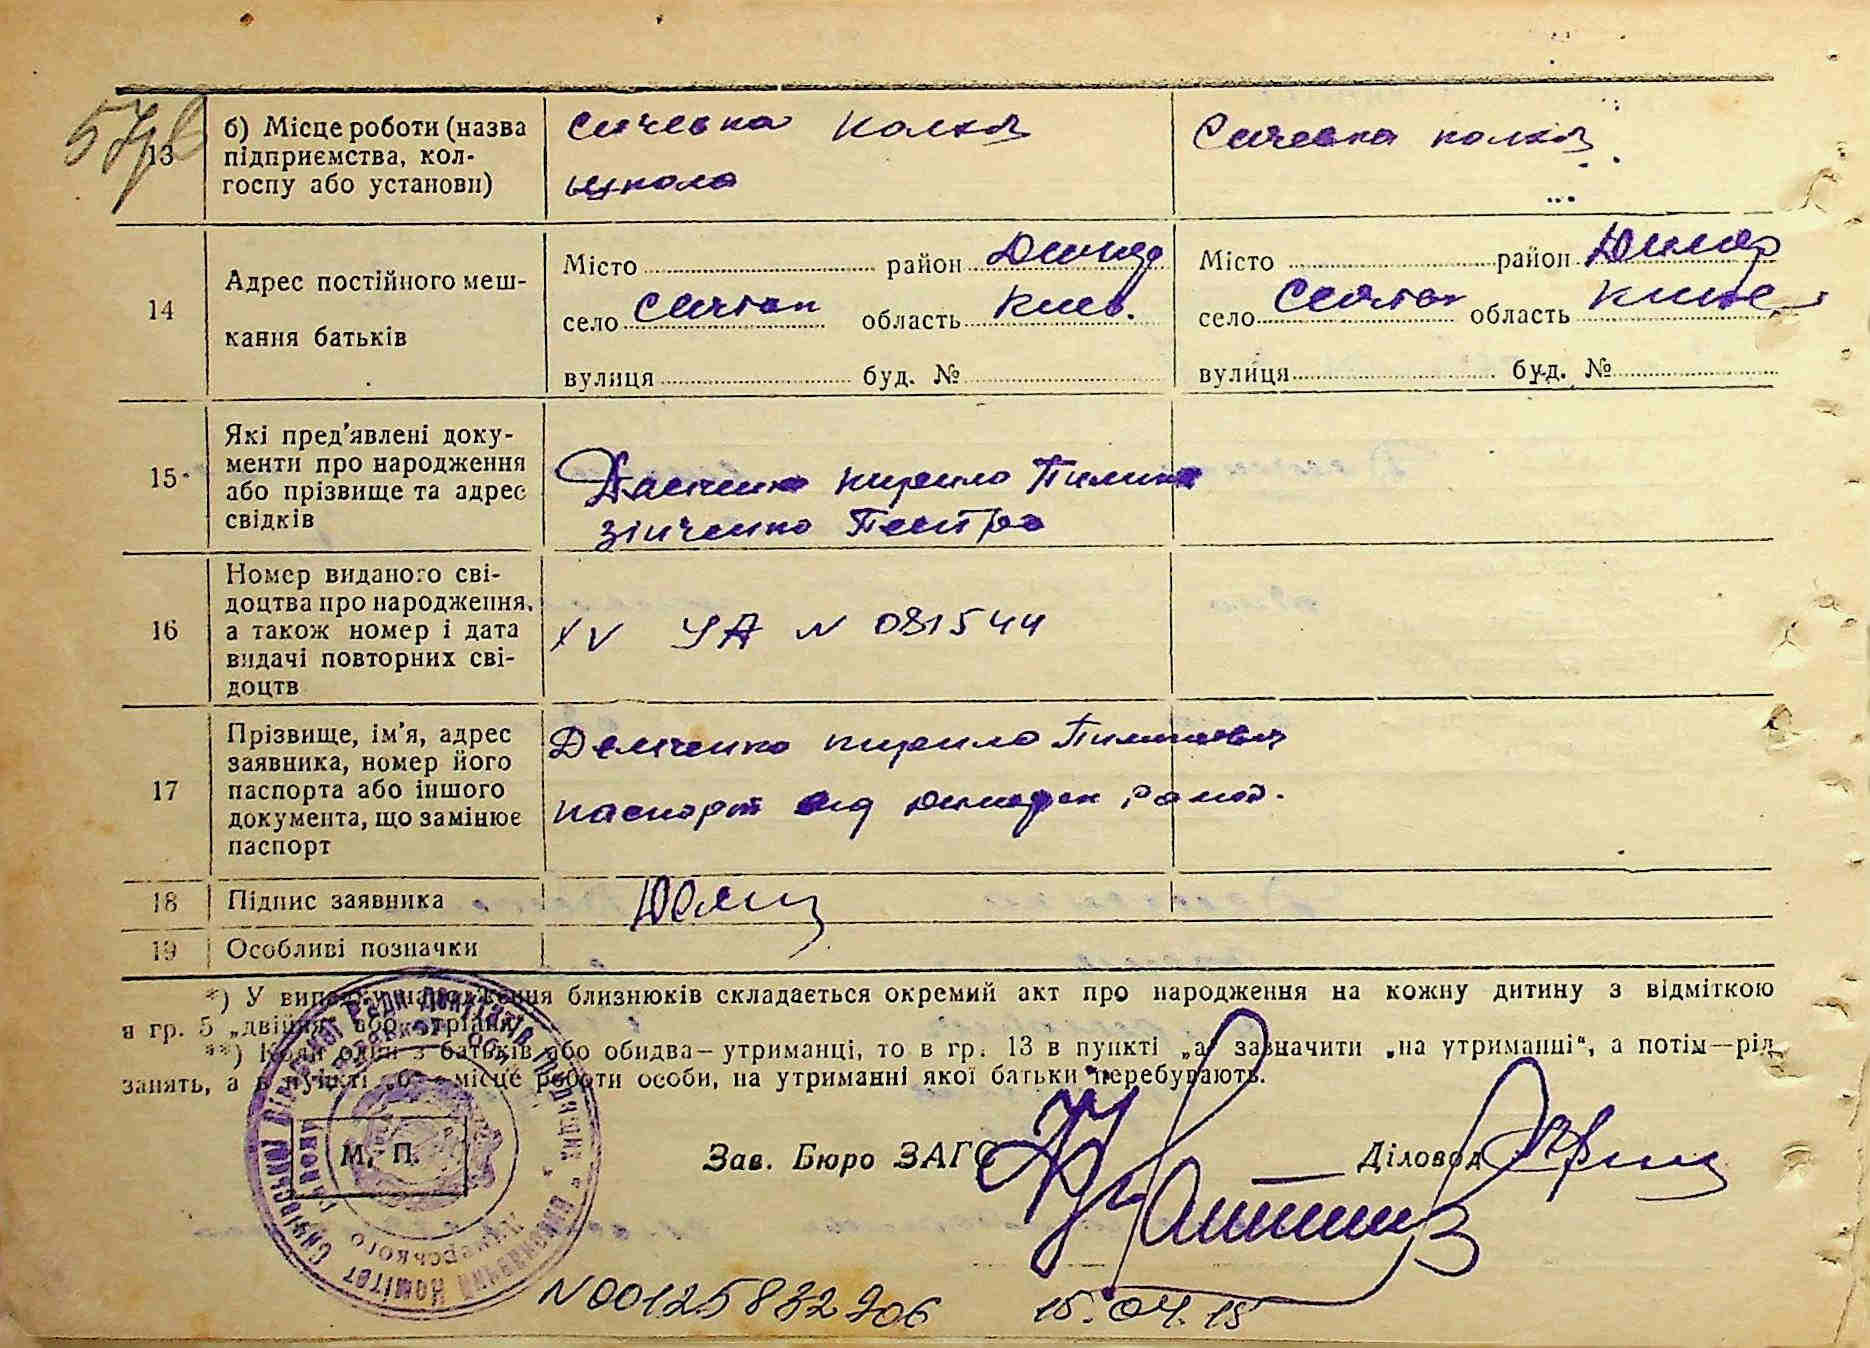 13
б) Місце роботи (назва
підприємства, кол-
госпу або установи)
школа
14
Адрес постійного меш-
кання батьків
Місто район Димер
село область Киев.
вулиця буд. №
Місто район Димер
село область
вулиця буд. №
15
Які пред'явлені доку-
менти про народження
або прізвище та адрес
свідків
Демченко Кирило
Зінченко
16
Номер виданого сві-
доцтва про народження,
а також номер і дата
видачі повторних сві-
доцтв
XV УА N 081544
17
Прізвище, ім'я, адрес
заявника, номер його
паспорта або іншого
документа, що замінює
паспорт
Демченко Кирило Пилипович
паспорт
18
Підпис заявника
19
Особливі позначки
*) У випадку народження близнюків складається окремий акт про народження на кожну дитину з відміткою
в гр. 5 „двійня" або „трійня".
**) Коли один з батьків або обидва—утриманці, то в гр. 13 в пункті „а" зазначити „на утриманні", а потім—рід
занять, а в пункті „б"—місце роботи особи, на утриманні якої батьки перебувають.
М. П.
Зав. Бюро ЗАГС
Діловод
N00125832206 15.04.15